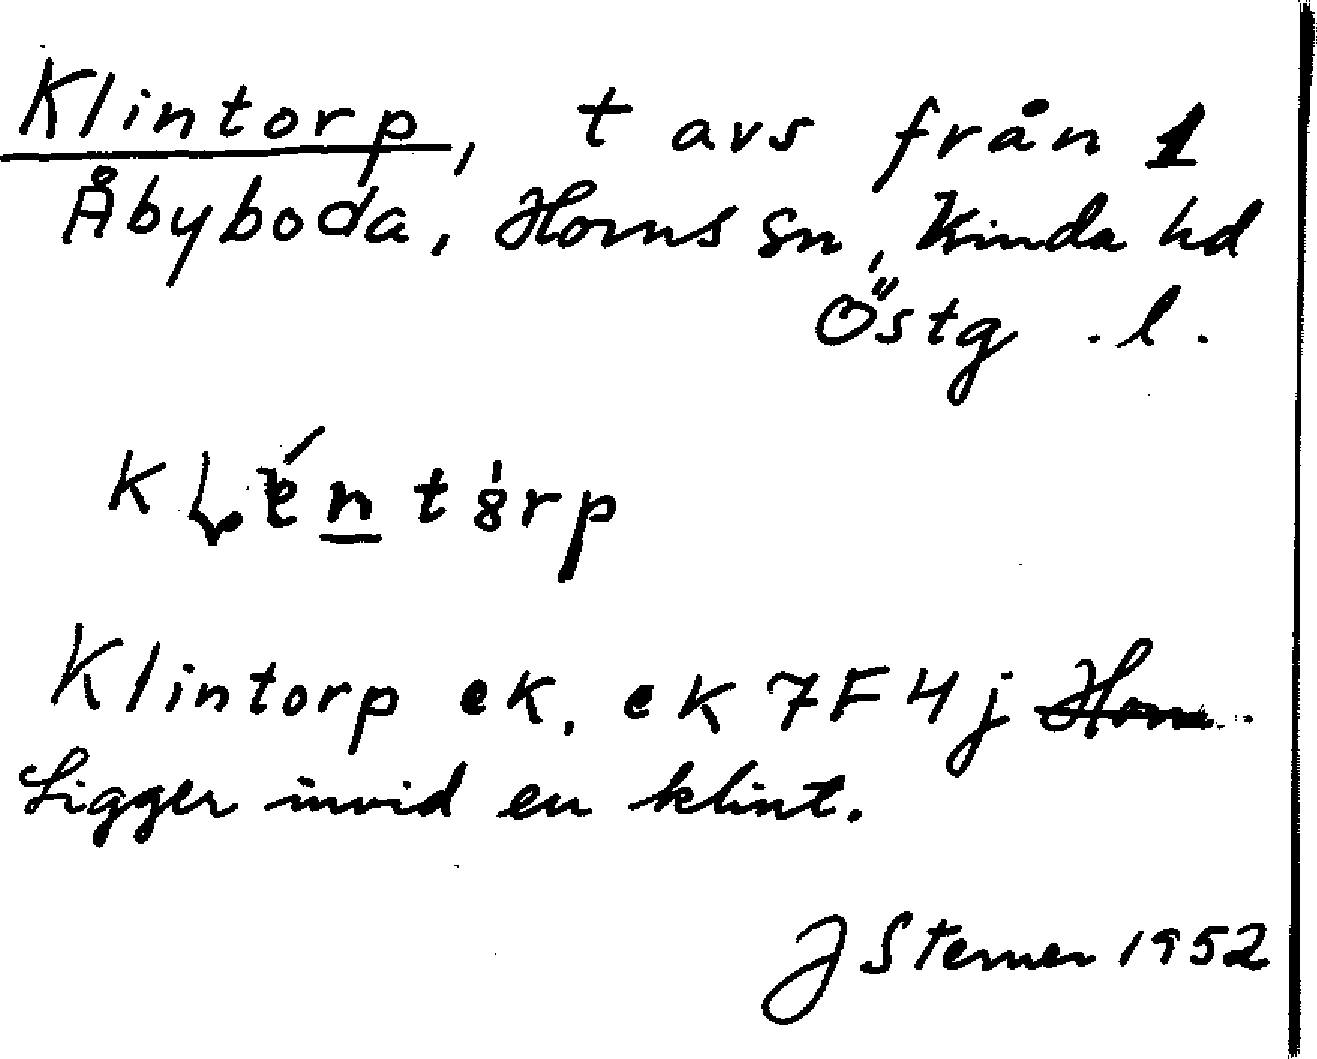 Klintorp, t avs från 1
Åbyboda, Horns sn, Kinda hd
Östg .l.
Klintorp ek. ek 7F4j Horn
Ligger invid en klint.
J Sterner 1952